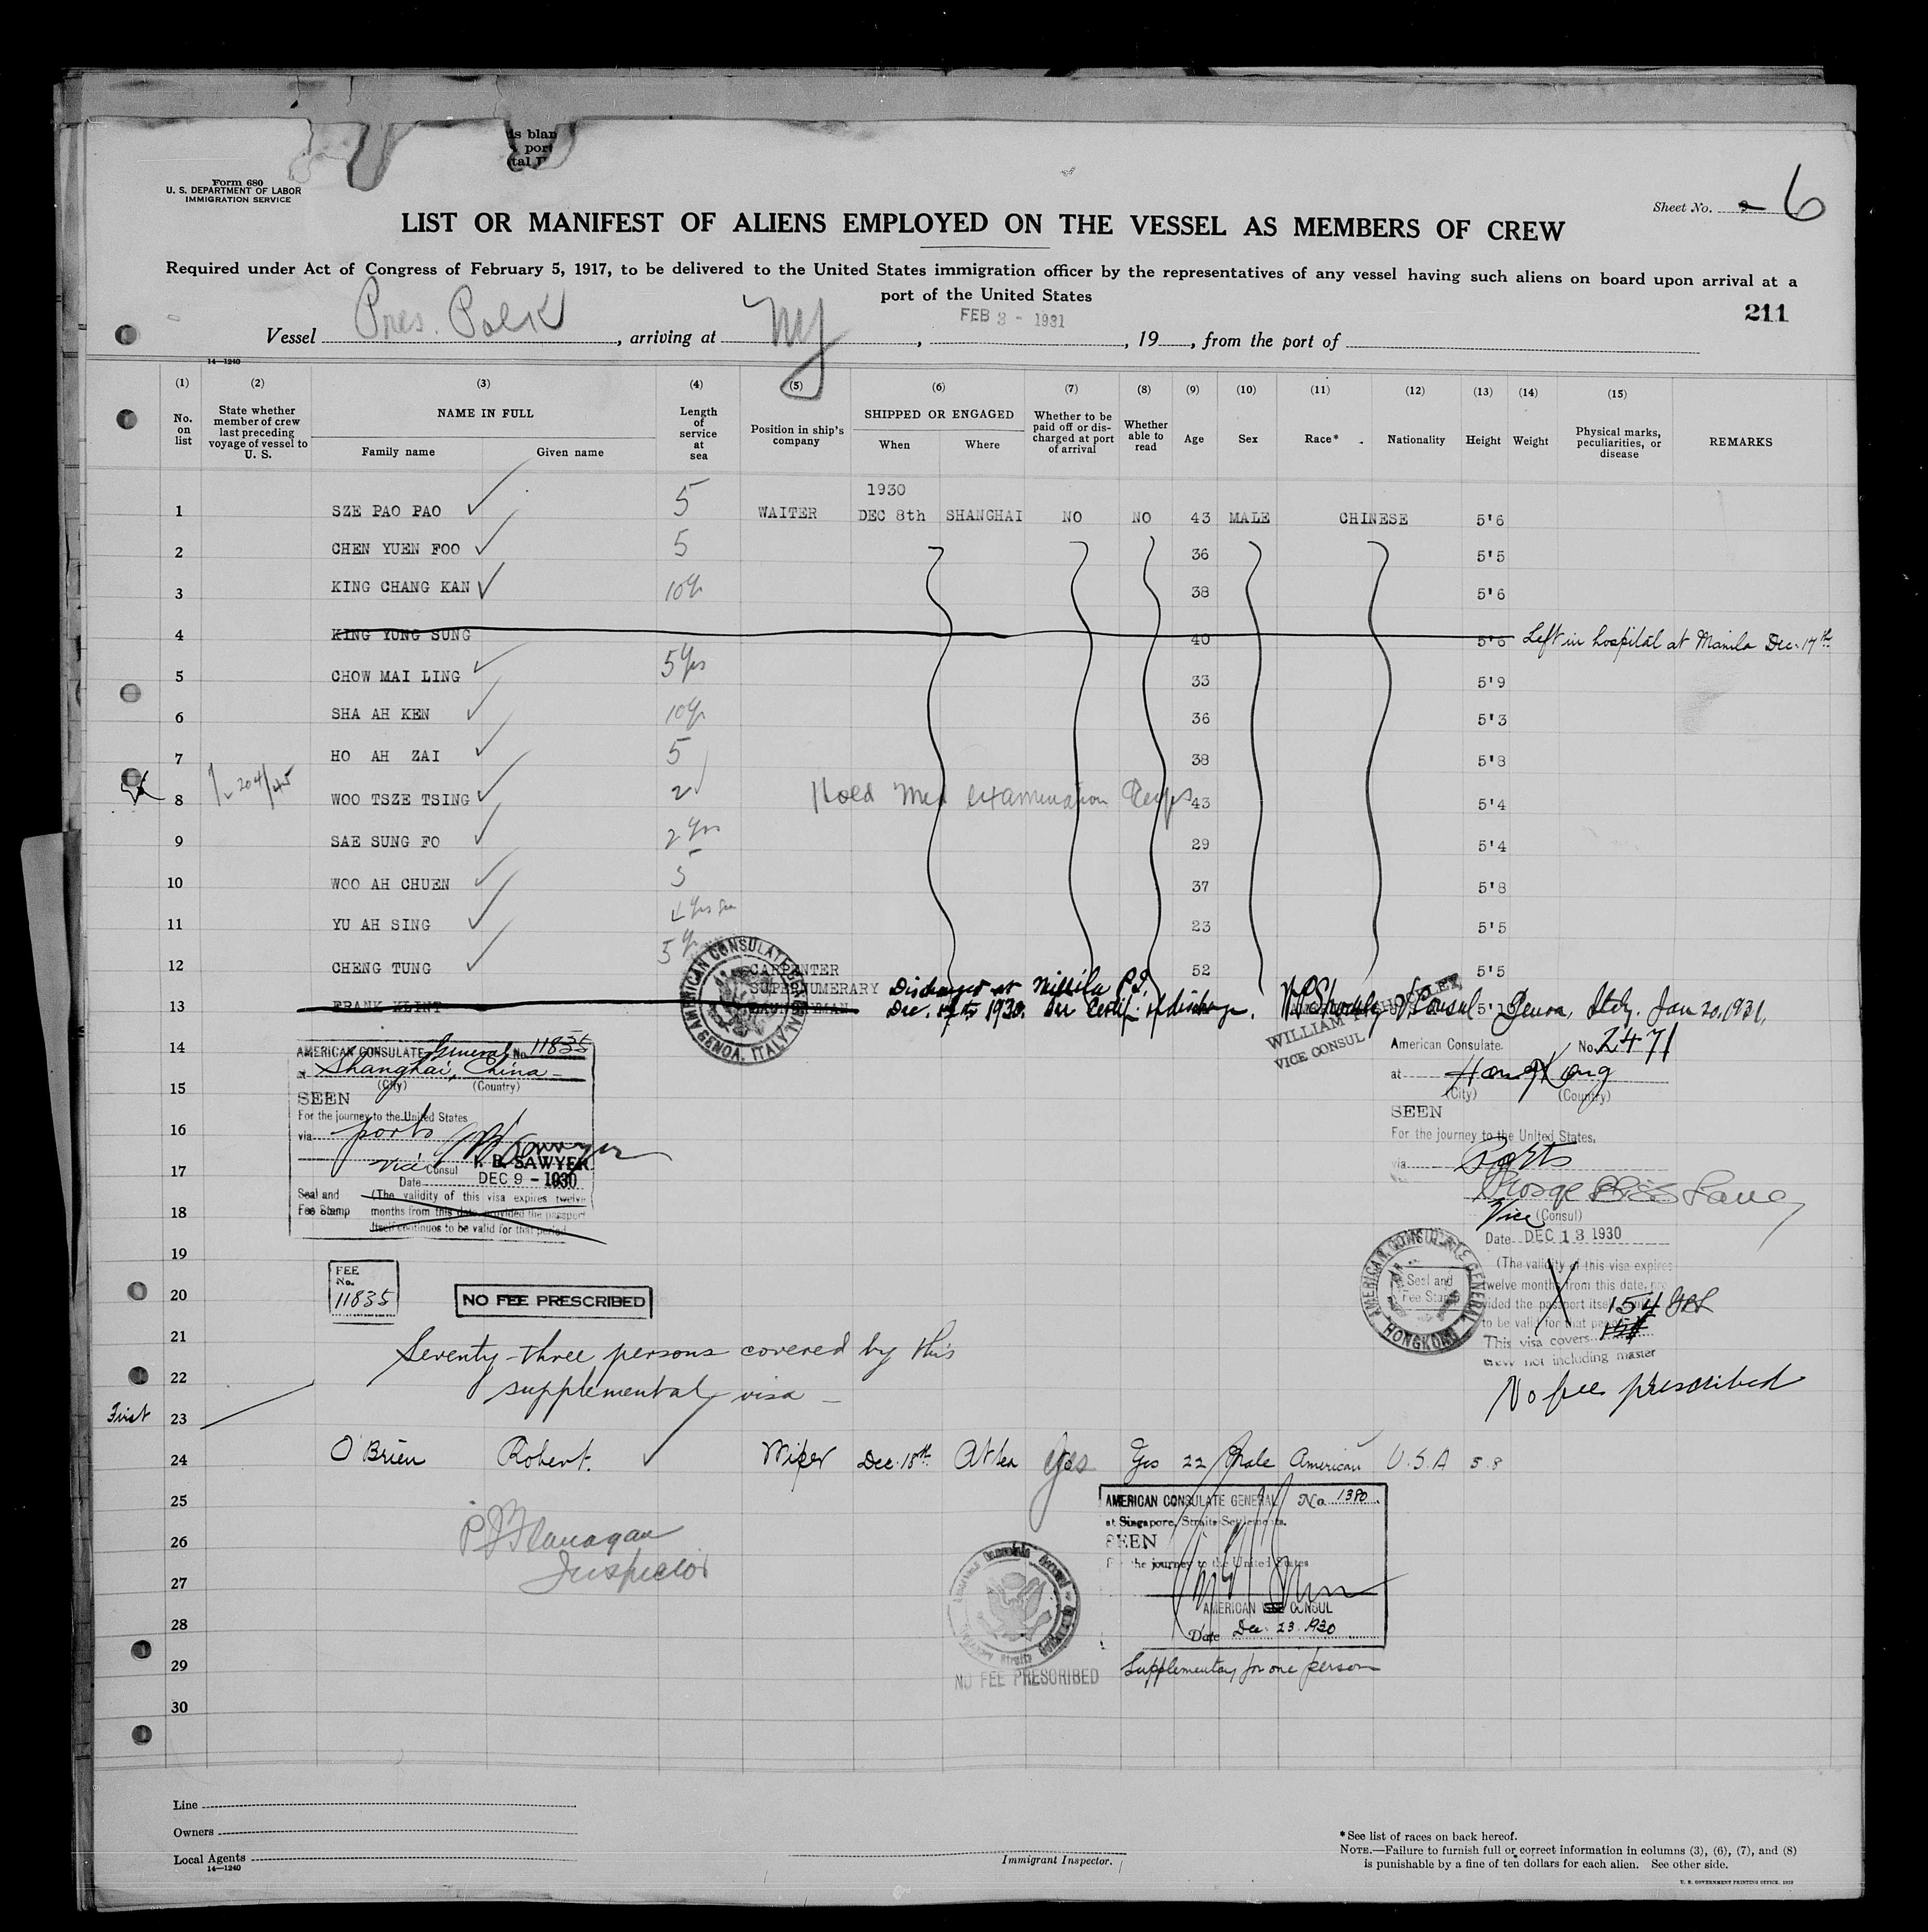 is blan
port
tal U
Form 680
U. S. DEPARTMENT OF LABOR
IMMIGRATION SERVICE
Sheet No. 6
LIST OR MANIFEST OF ALIENS EMPLOYED ON THE VESSEL AS MEMBERS OF CREW
Required under Act of Congress of February 5, 1917, to be delivered to the United States immigration officer by the representatives of any vessel having such aliens on board upon arrival at a
port of the United States
211
Vessel Pres. Polk, arriving at NY, FEB 3 - 1931, 19, from the port of
14—1240
(1) (2) (3) (4) (5) (6) (7) (8) (9) (10) (11) (12) (13) (14) (15)
No. on list
State whether member of crew last preceding voyage of vessel to U. S.
NAME IN FULL
Family name Given name
Length of service at sea
Position in ship's company
SHIPPED OR ENGAGED
When Where
Whether to be paid off or discharged at port of arrival
Whether able to read
Age
Sex
Race*
Nationality
Height
Weight
Physical marks, peculiarities, or disease
REMARKS
1930
1 SZE PAO PAO 5 WAITER DEC 8th SHANGHAI NO NO 43 MALE CHINESE 5'6
2 CHEN YUEN FOO 5 36 5'5
3 KING CHANG KAN 10 yr 38 5'6
4 KING YUNG SUNG 40 5'6 Left in hospital at Manila Dec. 17th
5 CHOW MAI LING 5 yrs 33 5'9
6 SHA AH KEN 10 yr 36 5'3
7 HO AH ZAI 5 38 5'8
8 WOO TSZE TSING 2 Hold Med examination 43 5'4
9 SAE SUNG FO 2 yrs 29 5'4
10 WOO AH CHUEN 5 37 5'8
11 YU AH SING 23 5'5
12 CHENG TUNG 5 yr CARPENTER 52 5'5
SUPERNUMERARY Discharged at Manila P.I.
13 FRANK KLINT Dec. 1930. See Certif. of discharge. V Consul Genoa, Italy. Jan 20, 1931.
AMERICAN CONSULATE GENERAL GENOA, ITALY
WILLIAM P. SHOCKLEY
VICE CONSUL
14
15
16
17
18
19
20
21
22
23
AMERICAN CONSULATE General No. 11835
at Shanghai, China
(City) (Country)
SEEN
For the journey to the United States
via ports
Vice Consul B. SAWYER
Date DEC 9 - 1930
Seal and Fee Stamp
(The validity of this visa expires twelve
months from this date, provided the passport
itself continues to be valid for that period
FEE
No.
11835
NO FEE PRESCRIBED
Seventy-three persons covered by this
supplemental visa
American Consulate. No. 2471
at HongKong
(City) (Country)
SEEN
For the journey to the United States.
via Ports
George Bliss Lane
Vice (Consul)
Date DEC 13 1930
AMERICAN CONSULATE GENERAL HONGKONG
Seal and
Fee Stamp
(The validity of this visa expires
twelve months from this date, pro
vided the passport itself
to be valid for that period 154
This visa covers
crew not including master
No fee prescribed
First
24 O'Brien Robert. Wiper Dec. 18th At Sea Yes Yes 22 Male American U.S.A 5.8
25
26
27
28
29
30
P J Flanagan
Inspector
AMERICAN CONSULATE GENERAL No 1380.
at Singapore, Straits Settlements.
SEEN
For the journey to the United States
AMERICAN CONSUL
Date Dec. 23. 1930
NO FEE PRESCRIBED
Supplementary for one person
Line
Owners
Local Agents
14—1240
Immigrant Inspector.
*See list of races on back hereof.
NOTE.—Failure to furnish full or correct information in columns (3), (6), (7), and (8)
is punishable by a fine of ten dollars for each alien. See other side.
U. S. GOVERNMENT PRINTING OFFICE.